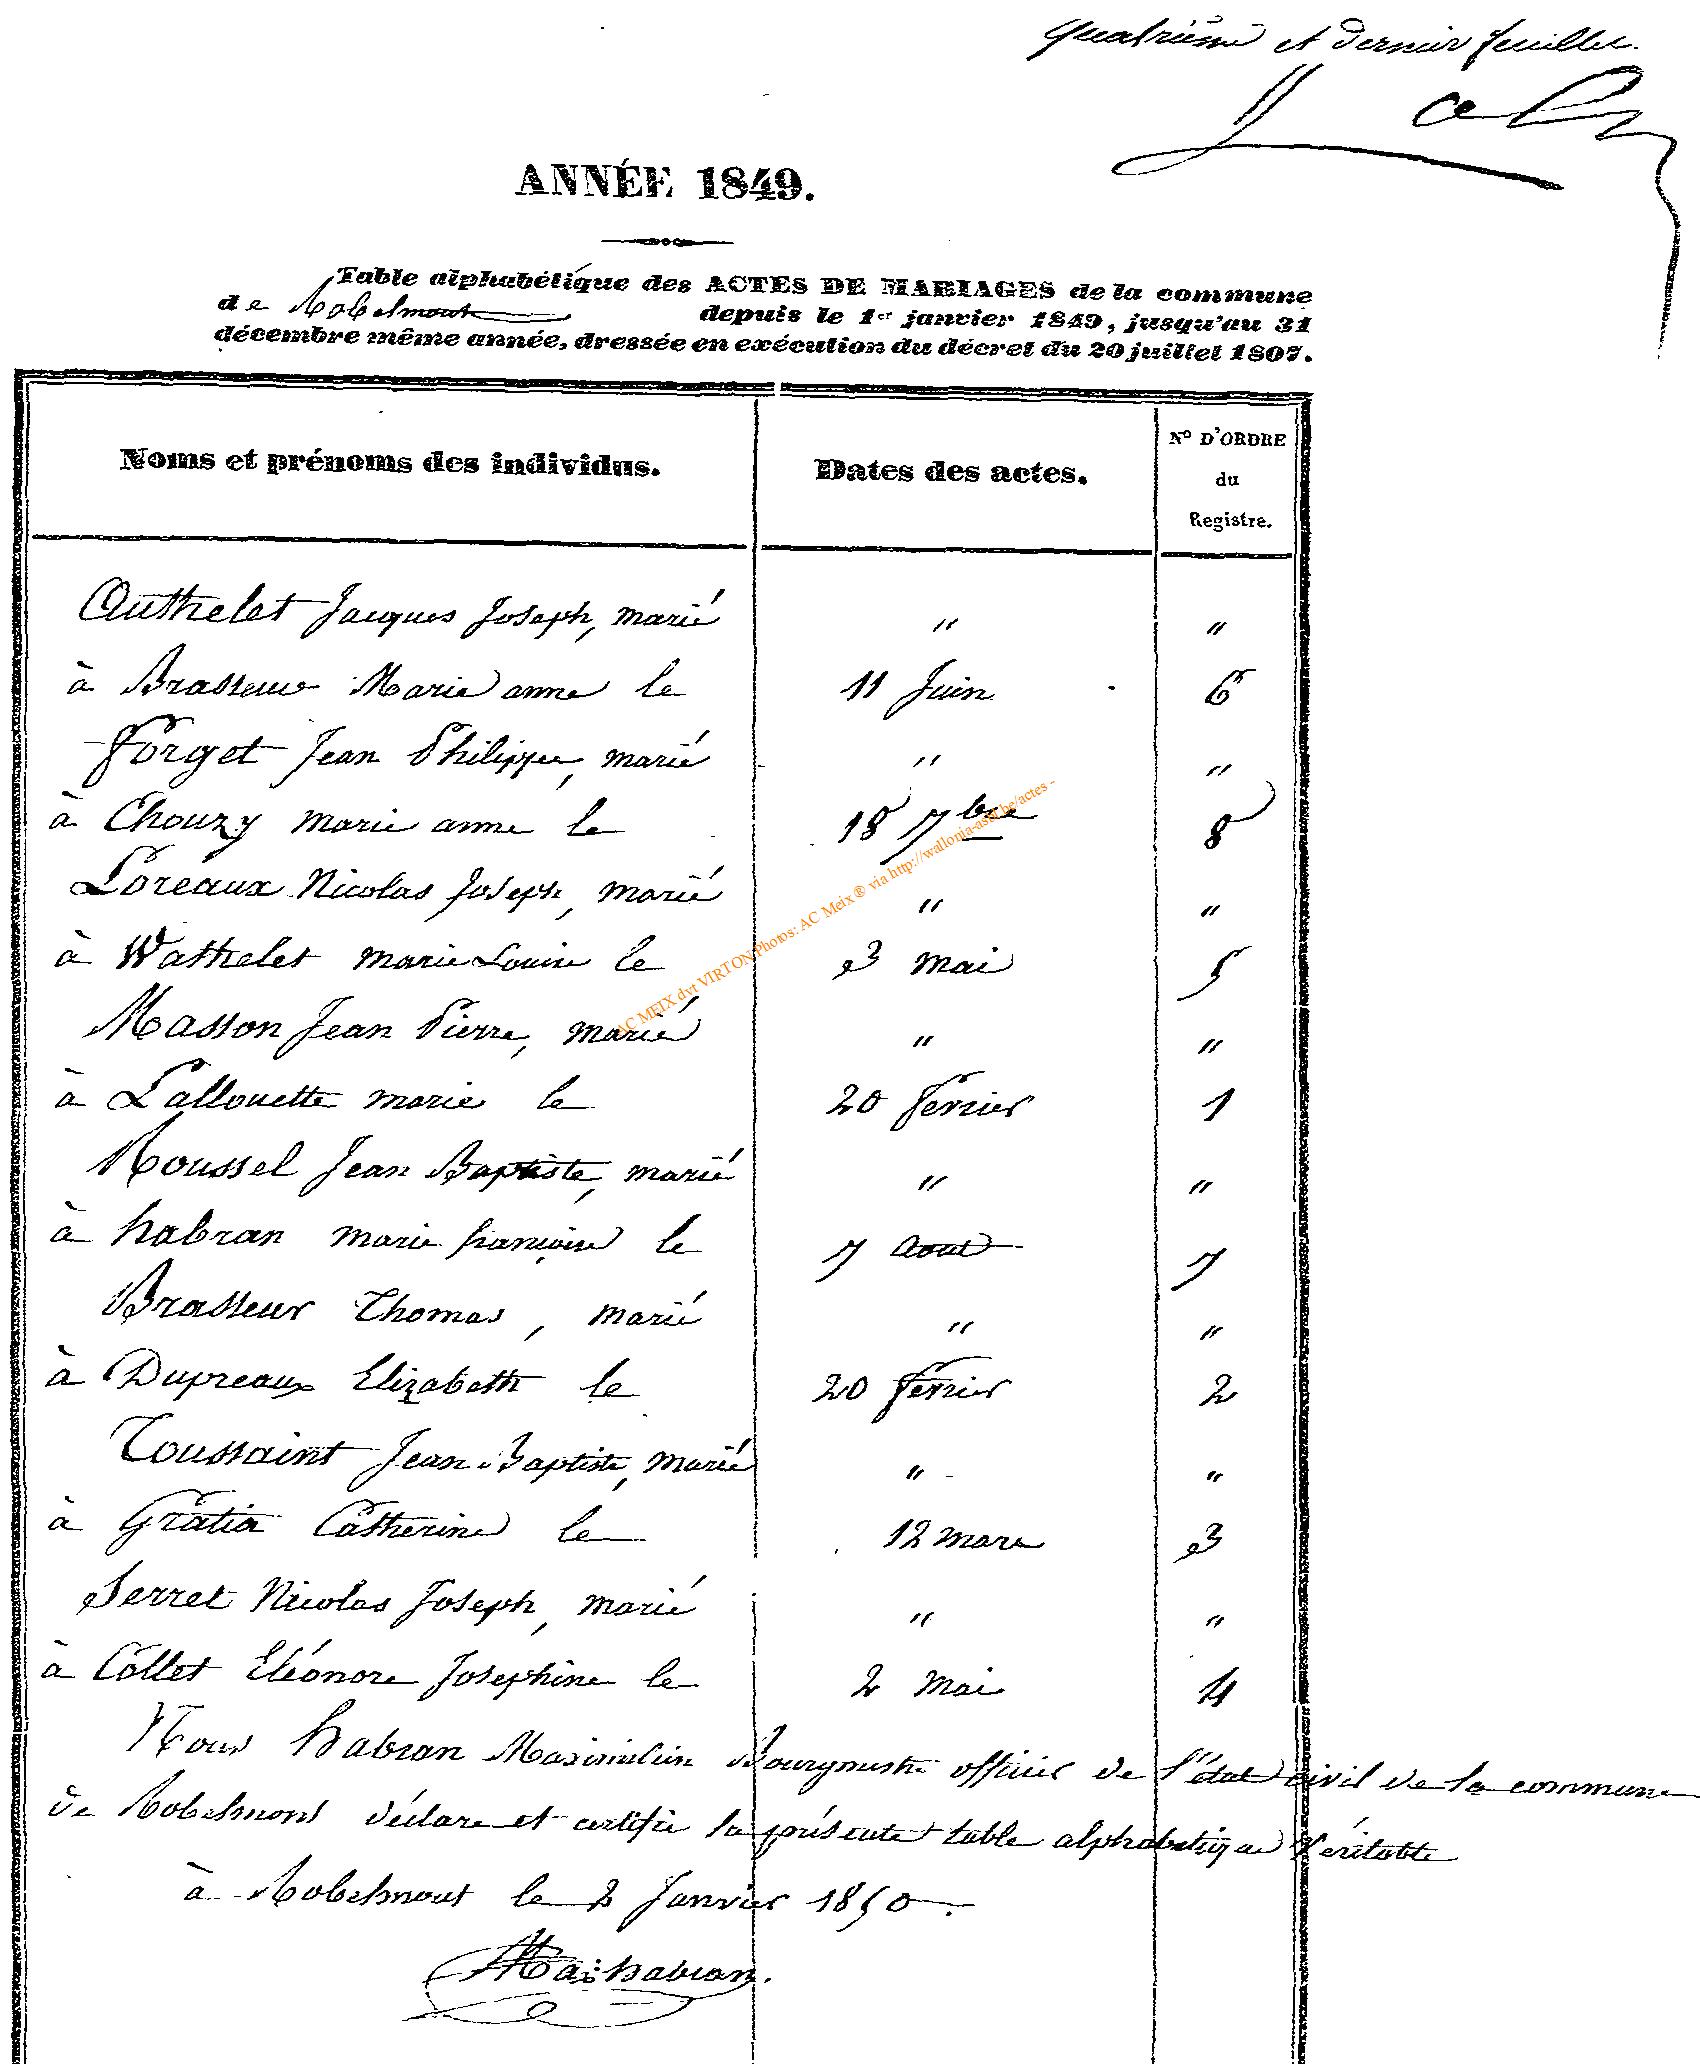 quatrième et dernier feuillet.
ANNÉE 1849.
Table alphabétique des ACTES DE MARIAGES de la commune
de Robelmont depuis le 1er janvier 1849, jusqu'au 31
décembre même année, dressée en exécution du décret du 20 juillet 1807.
Noms et prénoms des individus. Dates des actes. No D'ORDRE
du
Registre.
Authelet Jacques Joseph, marié " "
à Brasseur Marie anne le 11 Juin 6
Forget Jean Philippe, marié " "
à Chouzy marie anne le 18 7bre 8
Loreaux Nicolas Joseph, marié " "
à Wathelet marie Louise le 3 mai 5
Masson Jean Pierre, marié " "
à Lallouette marie le 20 fevrier 1
Roussel Jean Baptiste, marié " "
à habran marie françoise le 7 Aout 7
Brasseur Thomas, marié " "
à Dupreaux Elizabeth le 20 fevrier 2
Toussaint Jean Baptiste, marié " "
à Gratia Catherine le 12 mars 3
Serret Nicolas Joseph, marié " "
à Collet Eléonore Josephine le 2 mai 4
Nous habran Maximilien Bourgmestre officier de l'état civil de la commune
de Robelmont déclare et certifie la présente table alphabetique véritable
à Robelmont le 2 Janvier 1850.
Max habran.
AC MEIX dvt VIRTON Photos: AC Meix ® via http://wallonia-asbl.be/actes -